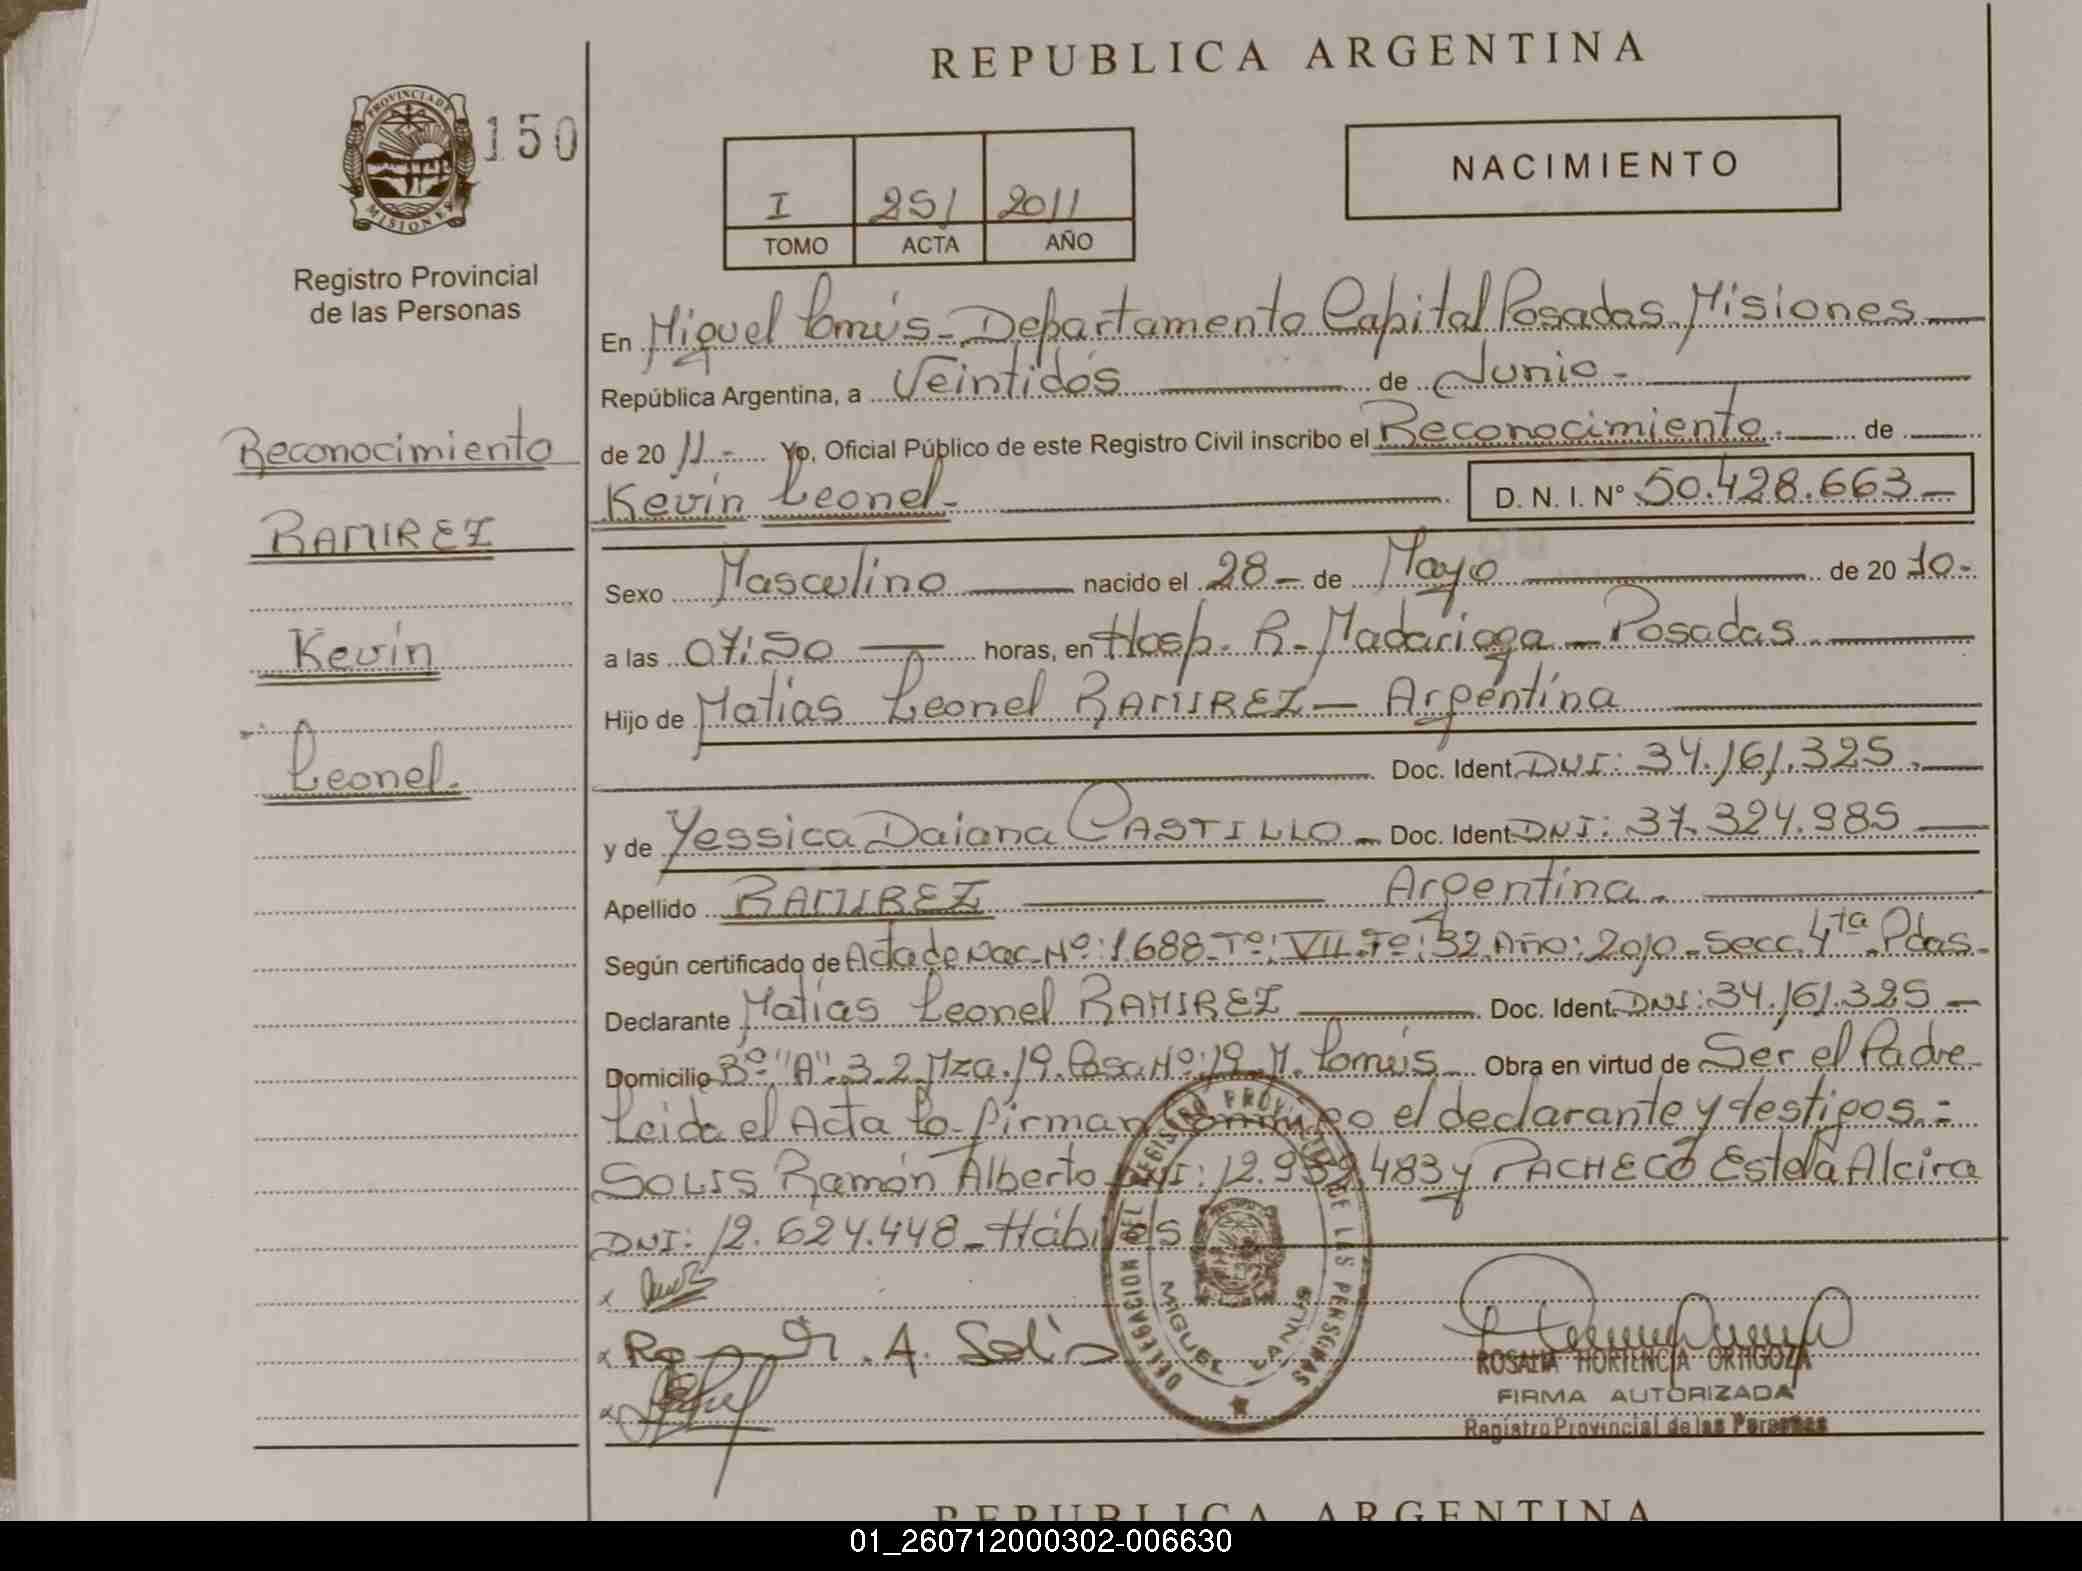 REPUBLICA ARGENTINA
PROVINCIA DE MISIONES
150
NACIMIENTO
I 251 2011
TOMO ACTA AÑO
Registro Provincial
de las Personas
Reconocimiento
RAMIREZ
Kevin
Leonel.
En Miguel Lanús - Departamento Capital Posadas Misiones
República Argentina, a Veintidós de Junio -
de 20 11.- Yo, Oficial Público de este Registro Civil inscribo el Reconocimiento. de
Kevin Leonel - D. N. I. N° 50.428.663 -
Sexo Masculino nacido el 28 - de Mayo de 20 10 -
a las 07:50 horas, en Hosp. R. Madariaga - Posadas
Hijo de Matías Leonel RAMIREZ - Argentina
Doc. Ident. DNI: 34.161.325.
y de Yessica Daiana CASTILLO - Doc. Ident. DNI: 37.324.985
Apellido RAMIREZ Argentina.
Según certificado de Acta de Nac. Nº: 1688 - Tº: VII. Fº: 32. Año: 2010 - Secc. 4ta. Pdas.
Declarante Matías Leonel RAMIREZ Doc. Ident. DNI: 34.161.325 -
Domicilio Bº "A" 3.2 Mza. 19. Casa Nº: 19 M. Lanús Obra en virtud de Ser el Padre
Leida el Acta la firman conmigo el declarante y testigos. =
SOLIS Ramón Alberto DNI: 12.952.483 y PACHECO Estela Alcira
DNI: 12.624.448 - Hábiles
x
x R. A. Solis
x
DELEGACION DEL REGISTRO PROVINCIAL DE LAS PERSONAS
MIGUEL LANUS
ROSALIA HORTENCIA ORTIGOZA
FIRMA AUTORIZADA
Registro Provincial de las Personas
REPUBLICA ARGENTINA
01_260712000302-006630